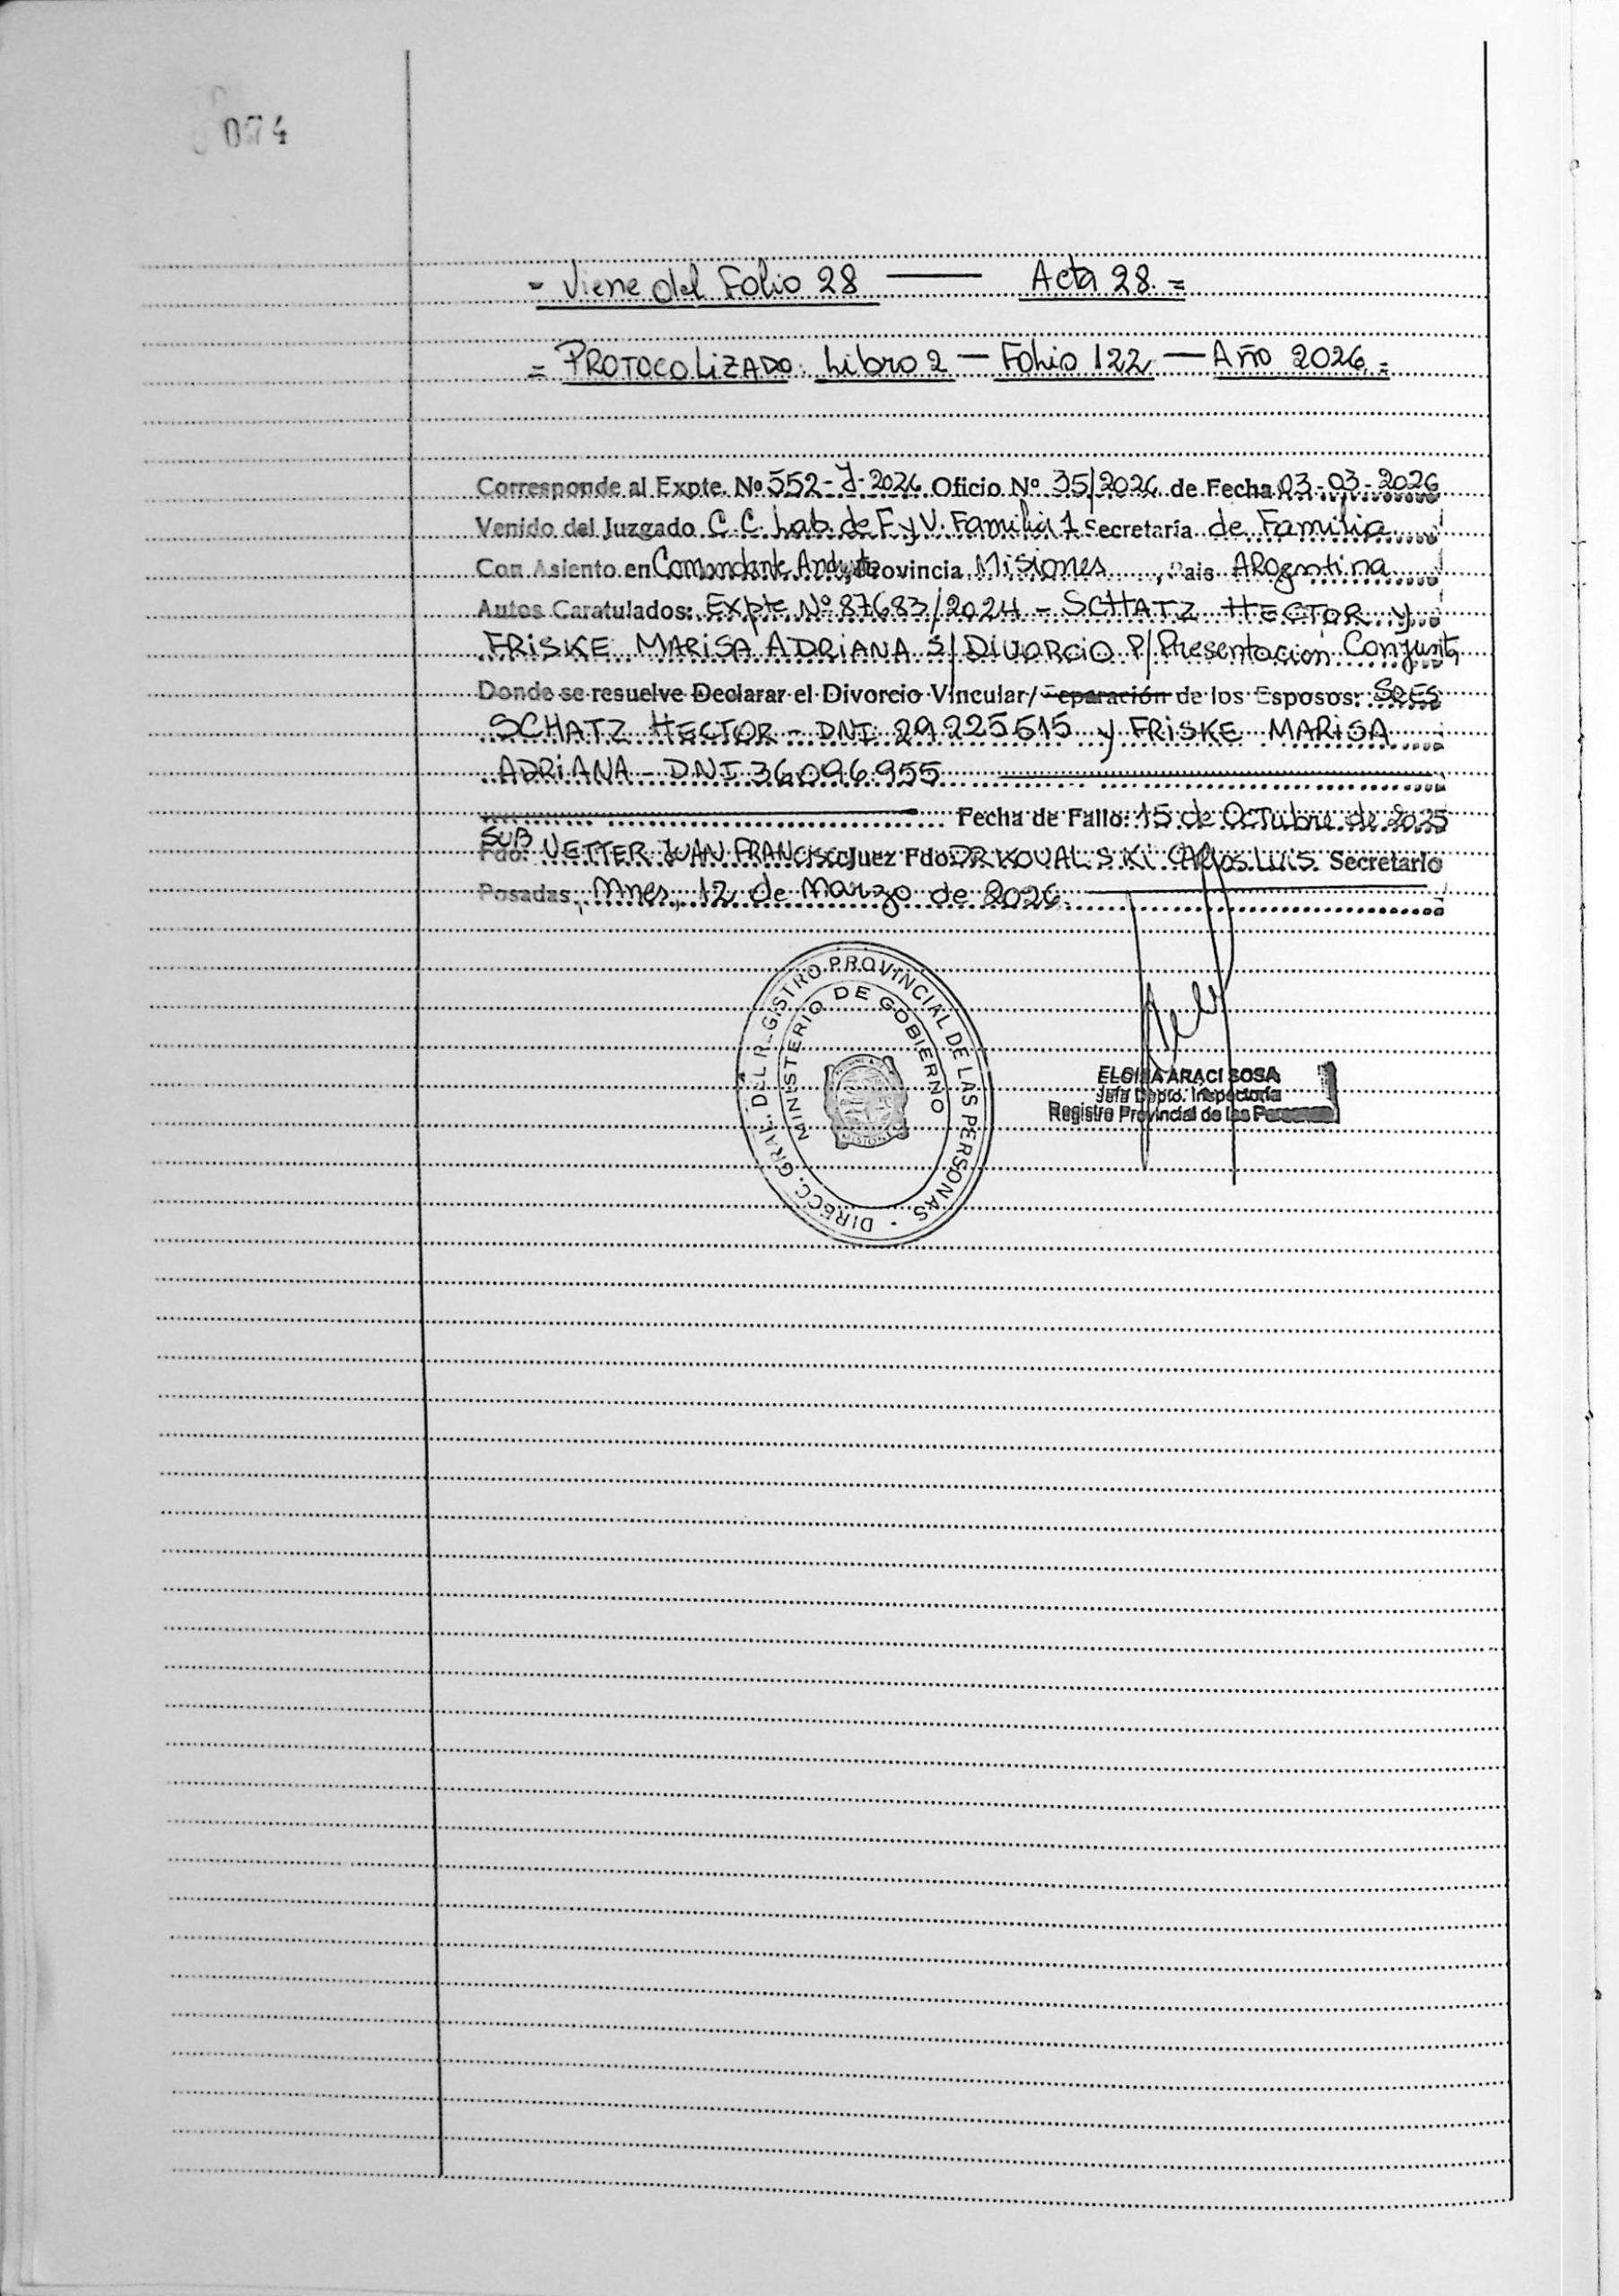 074
= Viene del Folio 28 — Acta 28. =
= PROTOCOLIZADO: Libro 2 — Folio 122 — Año 2026 =
Corresponde al Expte. Nº 552-J-2026 Oficio Nº 35/2026 de Fecha 03-03-2026
Venido del Juzgado C.C. Lab. de F y V. Familia 1 Secretaría de Familia
Con Asiento en Comandante Provincia Misiones, Pais ARgentina
Autos Caratulados: Expte Nº 87683/2024 - SCHATZ HECTOR y
FRISKE MARISA ADRIANA S/ DIVORCIO P/ Presentacion Conjunta
Donde se resuelve Declarar el Divorcio Vincular/ Separación de los Esposos:
SCHATZ HECTOR - DNI 29.225.615 y FRISKE MARISA
ADRIANA - DNI 36.096.955
Fecha de Fallo: 15 de Octubre de 2025
SUB
Fdo: VETTER JUAN FRANCISCO Juez Fdo: DR KOVALSKI CARLOS LUIS. Secretario
Posadas, Mnes, 12 de Marzo de 2026.
DIRECC. GRAL. DEL REGISTRO PROVINCIAL DE LAS PERSONAS -
MINISTERIO DE GOBIERNO
MISIONES
ELOISA ARACI SOSA
Jefa Depto. Inspectoría
Registro Provincial de las Personas